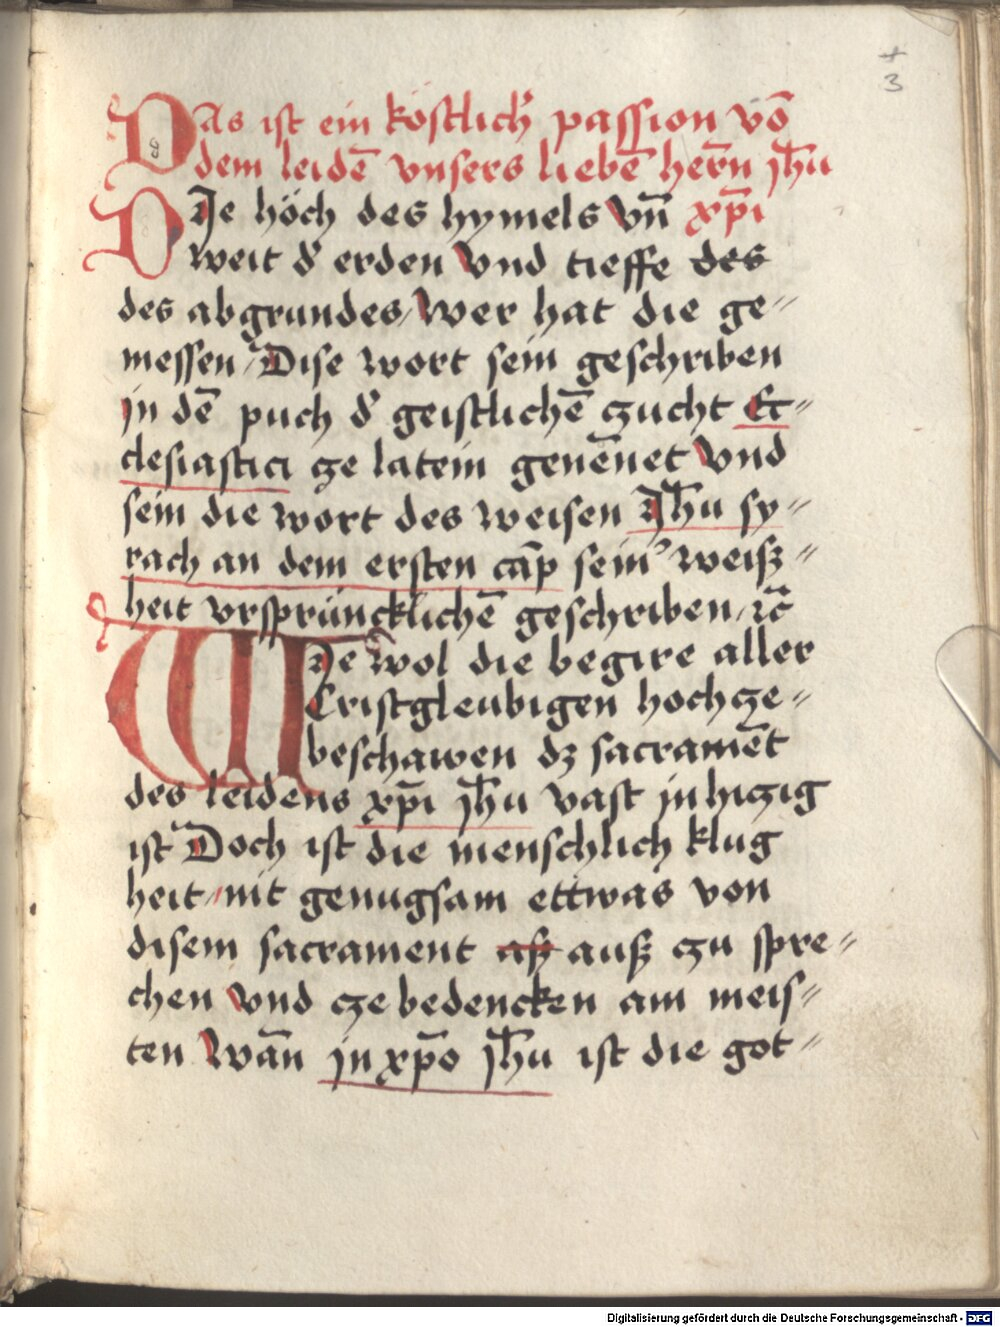 3
Das ist ein köstlich̛ passion vō
dem leidē vnsers liebē her̄n jh̄u
DJe höch des hymels vn̄ xp̄i
weit d̛ erden vnd tieffe des
des abgrundes / wer hat die ge⸗
messen / Dise wort sein geschriben
jn dē puch d̛ geistlichē czucht Ec⸗
clesiastici cze latein genēnet vnd
sein die wort des weisen Jh̄u sy⸗
rach an dem ersten cap̄ sein̛ weisz⸗
heit vrsprüncklichē geschriben / ꝛc̄
WJe wol die begire aller
Cristgleubigen hochcze⸗
beschawen dz sacramēt
des leidens xp̄i jh̄u vast jnhiczig
ist Doch ist die menschlich klug
heit / nit genugsam ettwas von
disem sacrament asz ausz czu spre⸗
chen vnd cze bedencken am meis⸗
ten Wān jn xp̄o jh̄u ist die got⸗
Digitalisierung gefördert durch die Deutsche Forschungsgemeinschaft - DFG